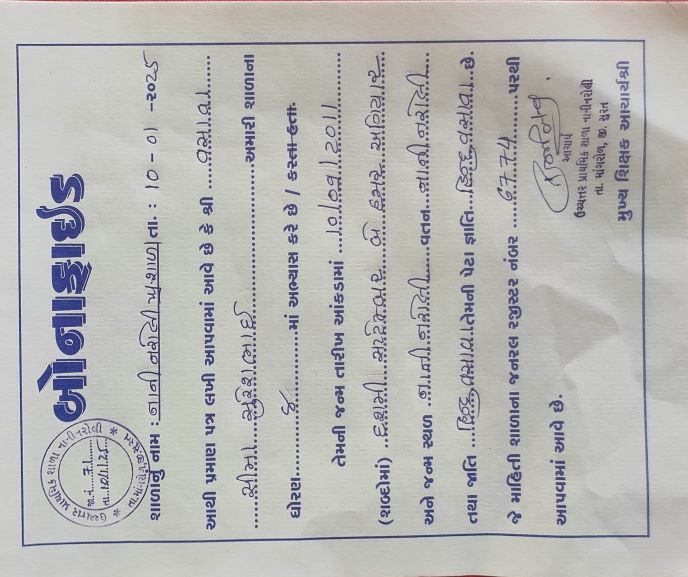 બોનાફાઈડ
ઉચ્ચત્તર પ્રાથમિક શાળા નાનીનરોલી
જા.નં. 71
તા. 10/1/25
તા.માંગરોળ, જી.સુરત
શાળાનું નામ : નાની નરોલી પ્ર.શાળા તા. : 10 - 01 - ૨૦૨5
આથી પ્રમાણ પત્ર લખી આપવામાં આવે છે કે શ્રી ....વસાવા......
......સીમા....સુરેશભાઈ.............અમારી શાળાના
ધોરણ.........૬...........માં અભ્યાસ કરે છે / કરતા હતા.
તેમની જન્મ તારીખ આંકડામાં ....10/09/2011........
(શબ્દોમાં) ..દશમી..સપ્ટેમ્બર..બે હજાર..અગિયાર..
અને જન્મ સ્થળ ..નાની નરોલી.....વતન...નાની નરોલી.....
તથા જાતિ ...હિન્દુ વસાવા.તેમની પેટા જ્ઞાતિ..હિન્દુ વસાવા..છે.
જે માહિતી શાળાના જનરલ રજીસ્ટર નંબર ....6774.......પરથી
આપવામાં આવે છે.
આચાર્ય
ઉચ્ચત્તર પ્રાથમિક શાળા નાનીનરોલી
તા. માંગરોળ, જી. સુરત
મુખ્ય શિક્ષક આચાર્યશ્રી